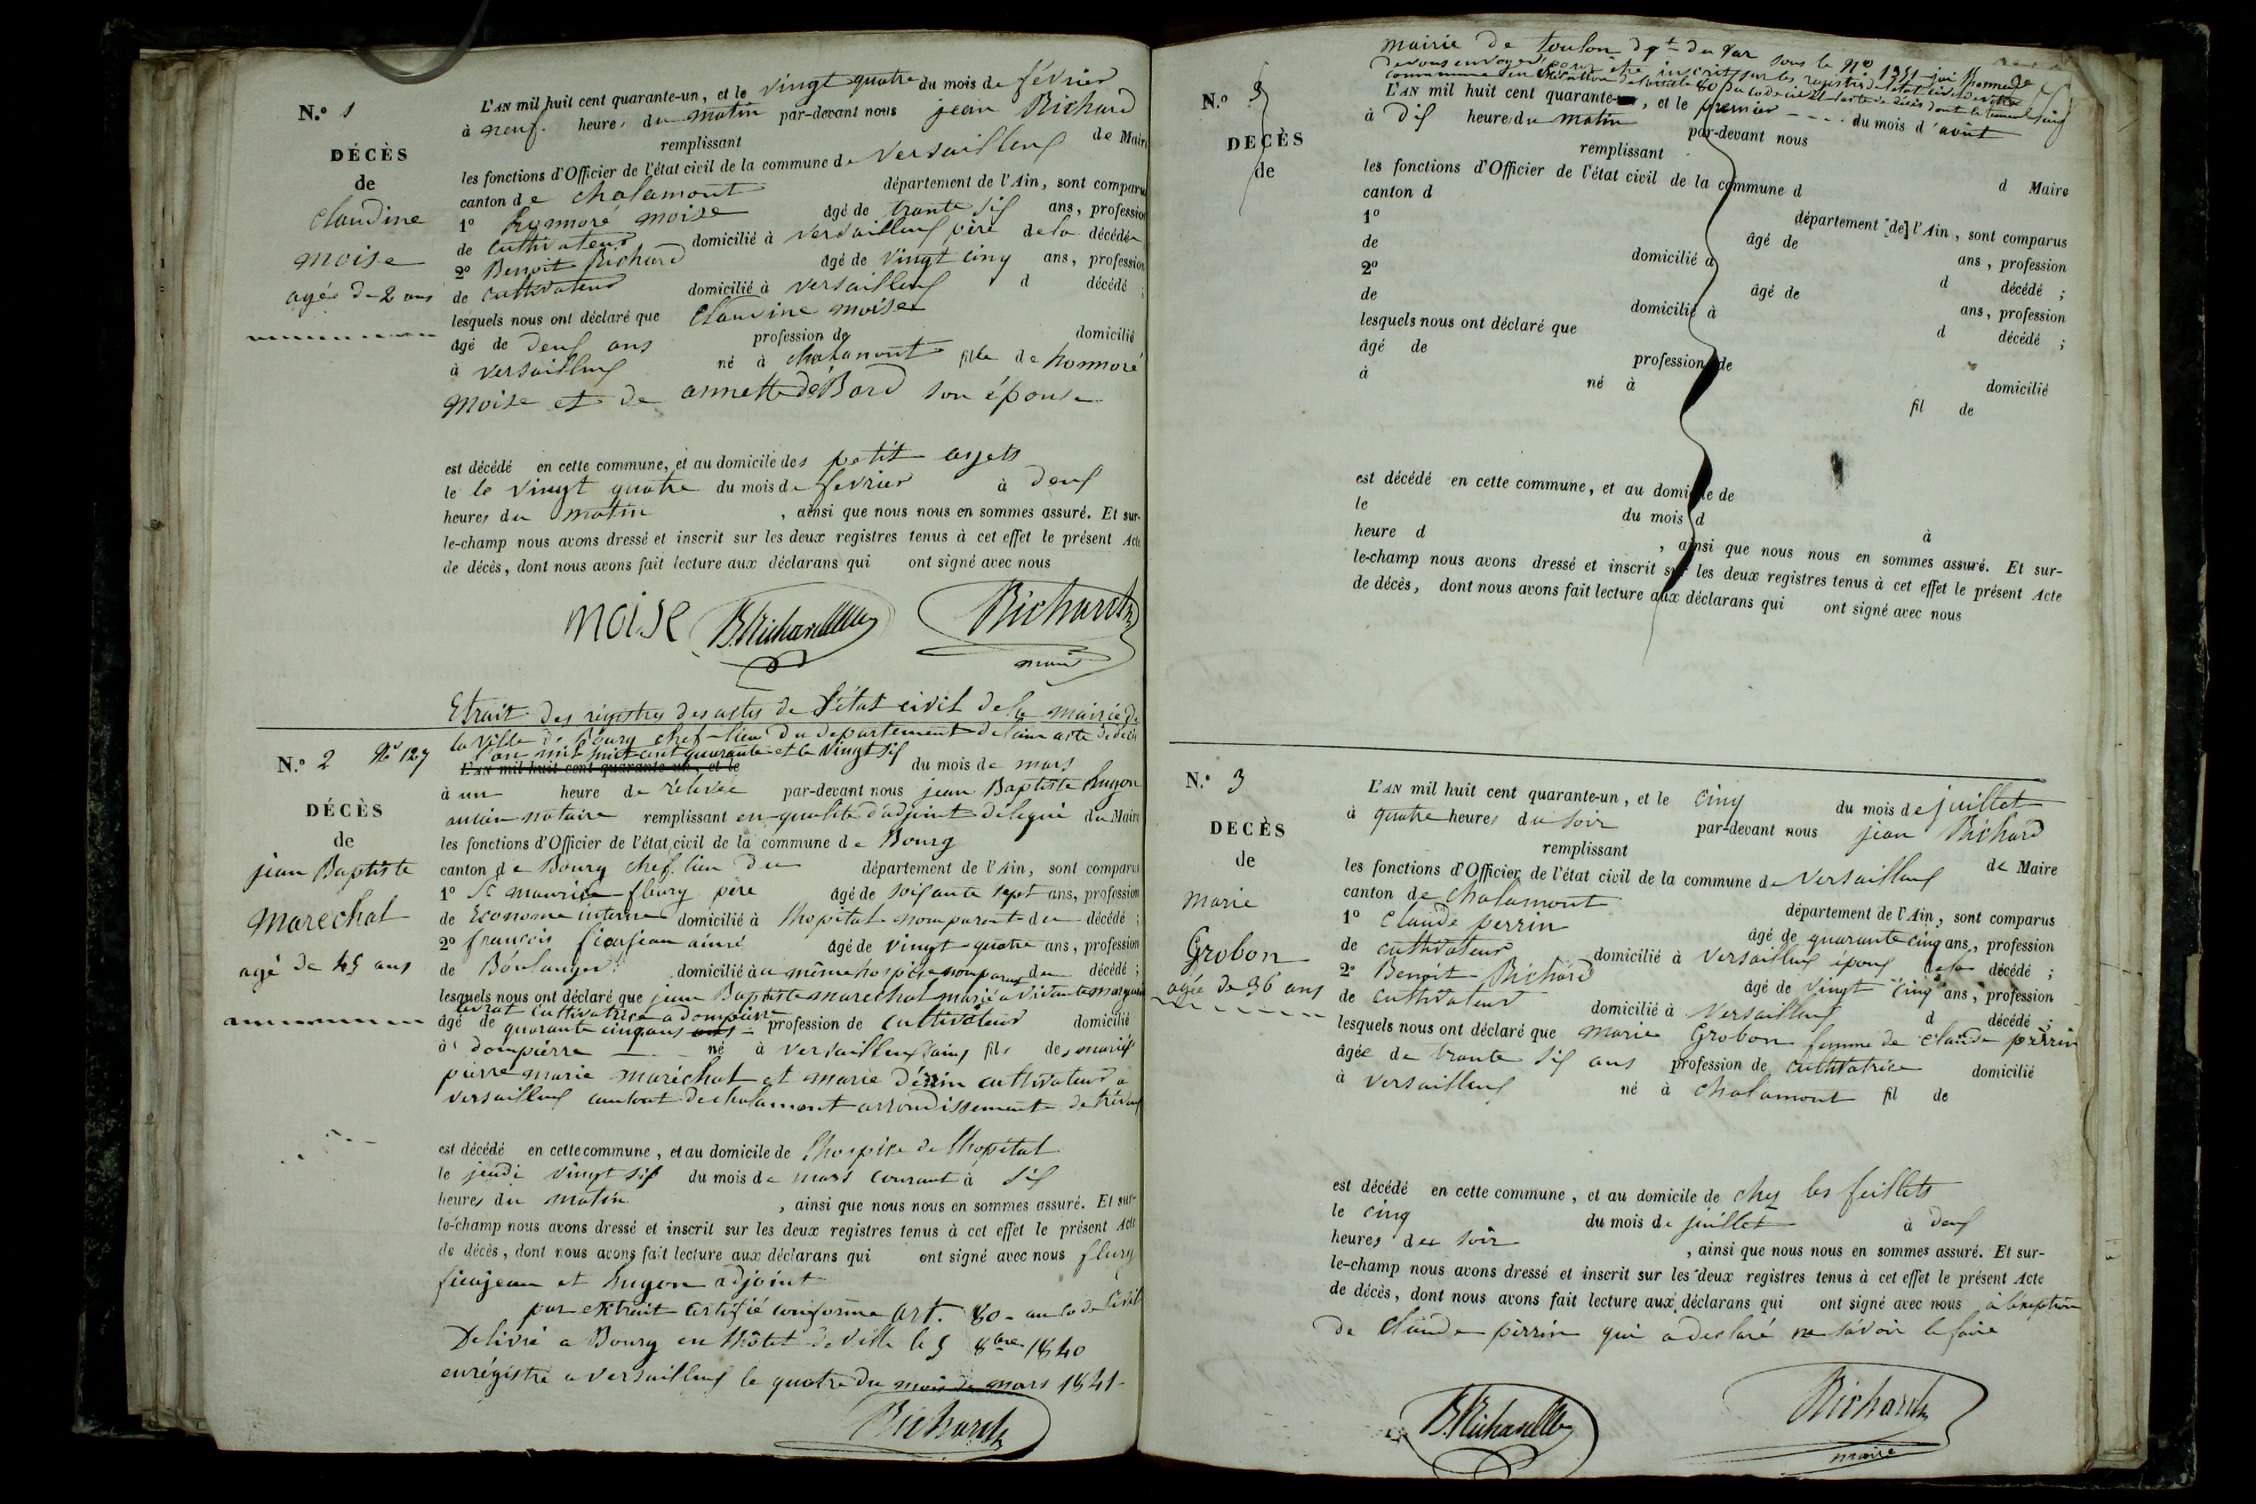 N.º 1
DÉCÈS
de
claudine
moise
agée de 2 ans
L'AN mil huit cent quarante-un, et le vingt quatre du mois de février
à neuf heures du matin par-devant nous jean Richard
remplissant de Maire
les fonctions d'Officier de l'état civil de la commune de Versailleux
canton de chalamont département de l'Ain, sont comparu
1º honnoré moise âgé de trante six ans, profession
de cultivateur domicilié à versailleux père de la décédée
2º Benoit Richard âgé de vingt cinq ans, profession
de cultivateur domicilié à versailleux d décédé ;
lesquels nous ont déclaré que Claudine moise
âgé de deux ans profession de domicilié
à versailleux né à chalamont fille de honnoré
moise et de annette de Bord son épouse
est décédé en cette commune, et au domicile des petit
le le vingt quatre du mois de fevrier à deux
heures du matin , ainsi que nous nous en sommes assuré. Et sur-
le-champ nous avons dressé et inscrit sur les deux registres tenus à cet effet le présent Acte
de décès, dont nous avons fait lecture aux déclarans qui ont signé avec nous
moise B. Richard Richard
maire
Etrait des registres des actes de l'état civil de la mairie de
la ville de Bourg chef-lieu du departement de l'ain acte de décès
N.º 2 Nº 127
DÉCÈS
de
jean Baptiste
marechal
agé de 45 ans
l'an mil huit cent quarante et le vingt six
L'AN mil huit cent quarante-un, et le du mois de mars
à un heure de relevée par-devant nous jean Baptiste hugon
ancien notaire remplissant en qualité d'adjoint délégué du Maire
les fonctions d'Officier de l'état civil de la commune de Bourg
canton de Bourg chef lieu du département de l'Ain, sont comparus
1º Sr maurice fleury père âgé de soixante sept ans, profession
de Econome interne domicilié à l'hopital non parent du décédé ;
2º francois ficarjean ainé âgé de vingt quatre ans, profession
de Boulanger domicilié à u même hospice non parent du décédé ;
lesquels nous ont déclaré que jean Baptiste marechal marié a vivante
cultivatrice a dompierre
âgé de quarante cinq ans profession de cultivateur domicilié
à dompierre né à versailleux (ain) fils des mariés
pierre marie maréchal et marie cultivateurs a
versailleux canton de chalamont arrondissement de trévoux
est décédé en cette commune, et au domicile de l'hospice de l'hopital
le jeudi vingt six du mois de mars courant à six
heures du matin , ainsi que nous nous en sommes assuré. Et sur-
le-champ nous avons dressé et inscrit sur les deux registres tenus à cet effet le présent Acte
de décès, dont nous avons fait lecture aux déclarans qui ont signé avec nous fleury
ficarjean et hugon adjoint
par extrait certifié conforme art. 80 - au code Civil
Delivré a Bourg en l'hôtel de ville le 5 8bre 1840
enrégistré a versailleux le quatre du mois de mars 1841-
Richard
mairie de toulon dpt du Var sous le Nº 1351
N.º 3
DÉCÈS
de
L'AN mil huit cent quarante- , et le premier du mois d'août
à dix heures du matin par-devant nous
remplissant d Maire
les fonctions d'Officier de l'état civil de la commune d
canton d département [de] l'Ain, sont comparus
1º âgé de ans, profession
de domicilié à d décédé ;
2º âgé de ans, profession
de domicilié à d décédé ;
lesquels nous ont déclaré que
âgé de profession de domicilié
à né à fil de
est décédé en cette commune, et au domicile de
le du mois d à
heure d , ainsi que nous nous en sommes assuré. Et sur-
le-champ nous avons dressé et inscrit sur les deux registres tenus à cet effet le présent Acte
de décès, dont nous avons fait lecture aux déclarans qui ont signé avec nous
N.º 3
DECÈS
de
marie
Grobon
agée de 36 ans
L'AN mil huit cent quarante-un, et le cinq du mois de juillet
à quatre heures du soir par-devant nous jean Richard
remplissant de Maire
les fonctions d'Officier de l'état civil de la commune de Versailleux
canton de chalamont département de l'Ain, sont comparus
1º Claude perrin âgé de quarante cinq ans, profession
de cultivateur domicilié à versailleux époux de la décédé ;
2º Benoit Richard âgé de vingt cinq ans, profession
de cultivateur domicilié à versailleux d décédé ;
lesquels nous ont déclaré que marie Grobon femme de claude perrin
âgée de trante six ans profession de cultivatrice domicilié
à versailleux né à chalamont fil de
est décédé en cette commune, et au domicile de chez les feillets
le cinq du mois de juillet à deux
heures du soir , ainsi que nous nous en sommes assuré. Et sur-
le-champ nous avons dressé et inscrit sur les deux registres tenus à cet effet le présent Acte
de décès, dont nous avons fait lecture aux déclarans qui ont signé avec nous à l'éxeption
de claude perrin qui a declaré ne savoir le faire
B. Richard Richard
maire